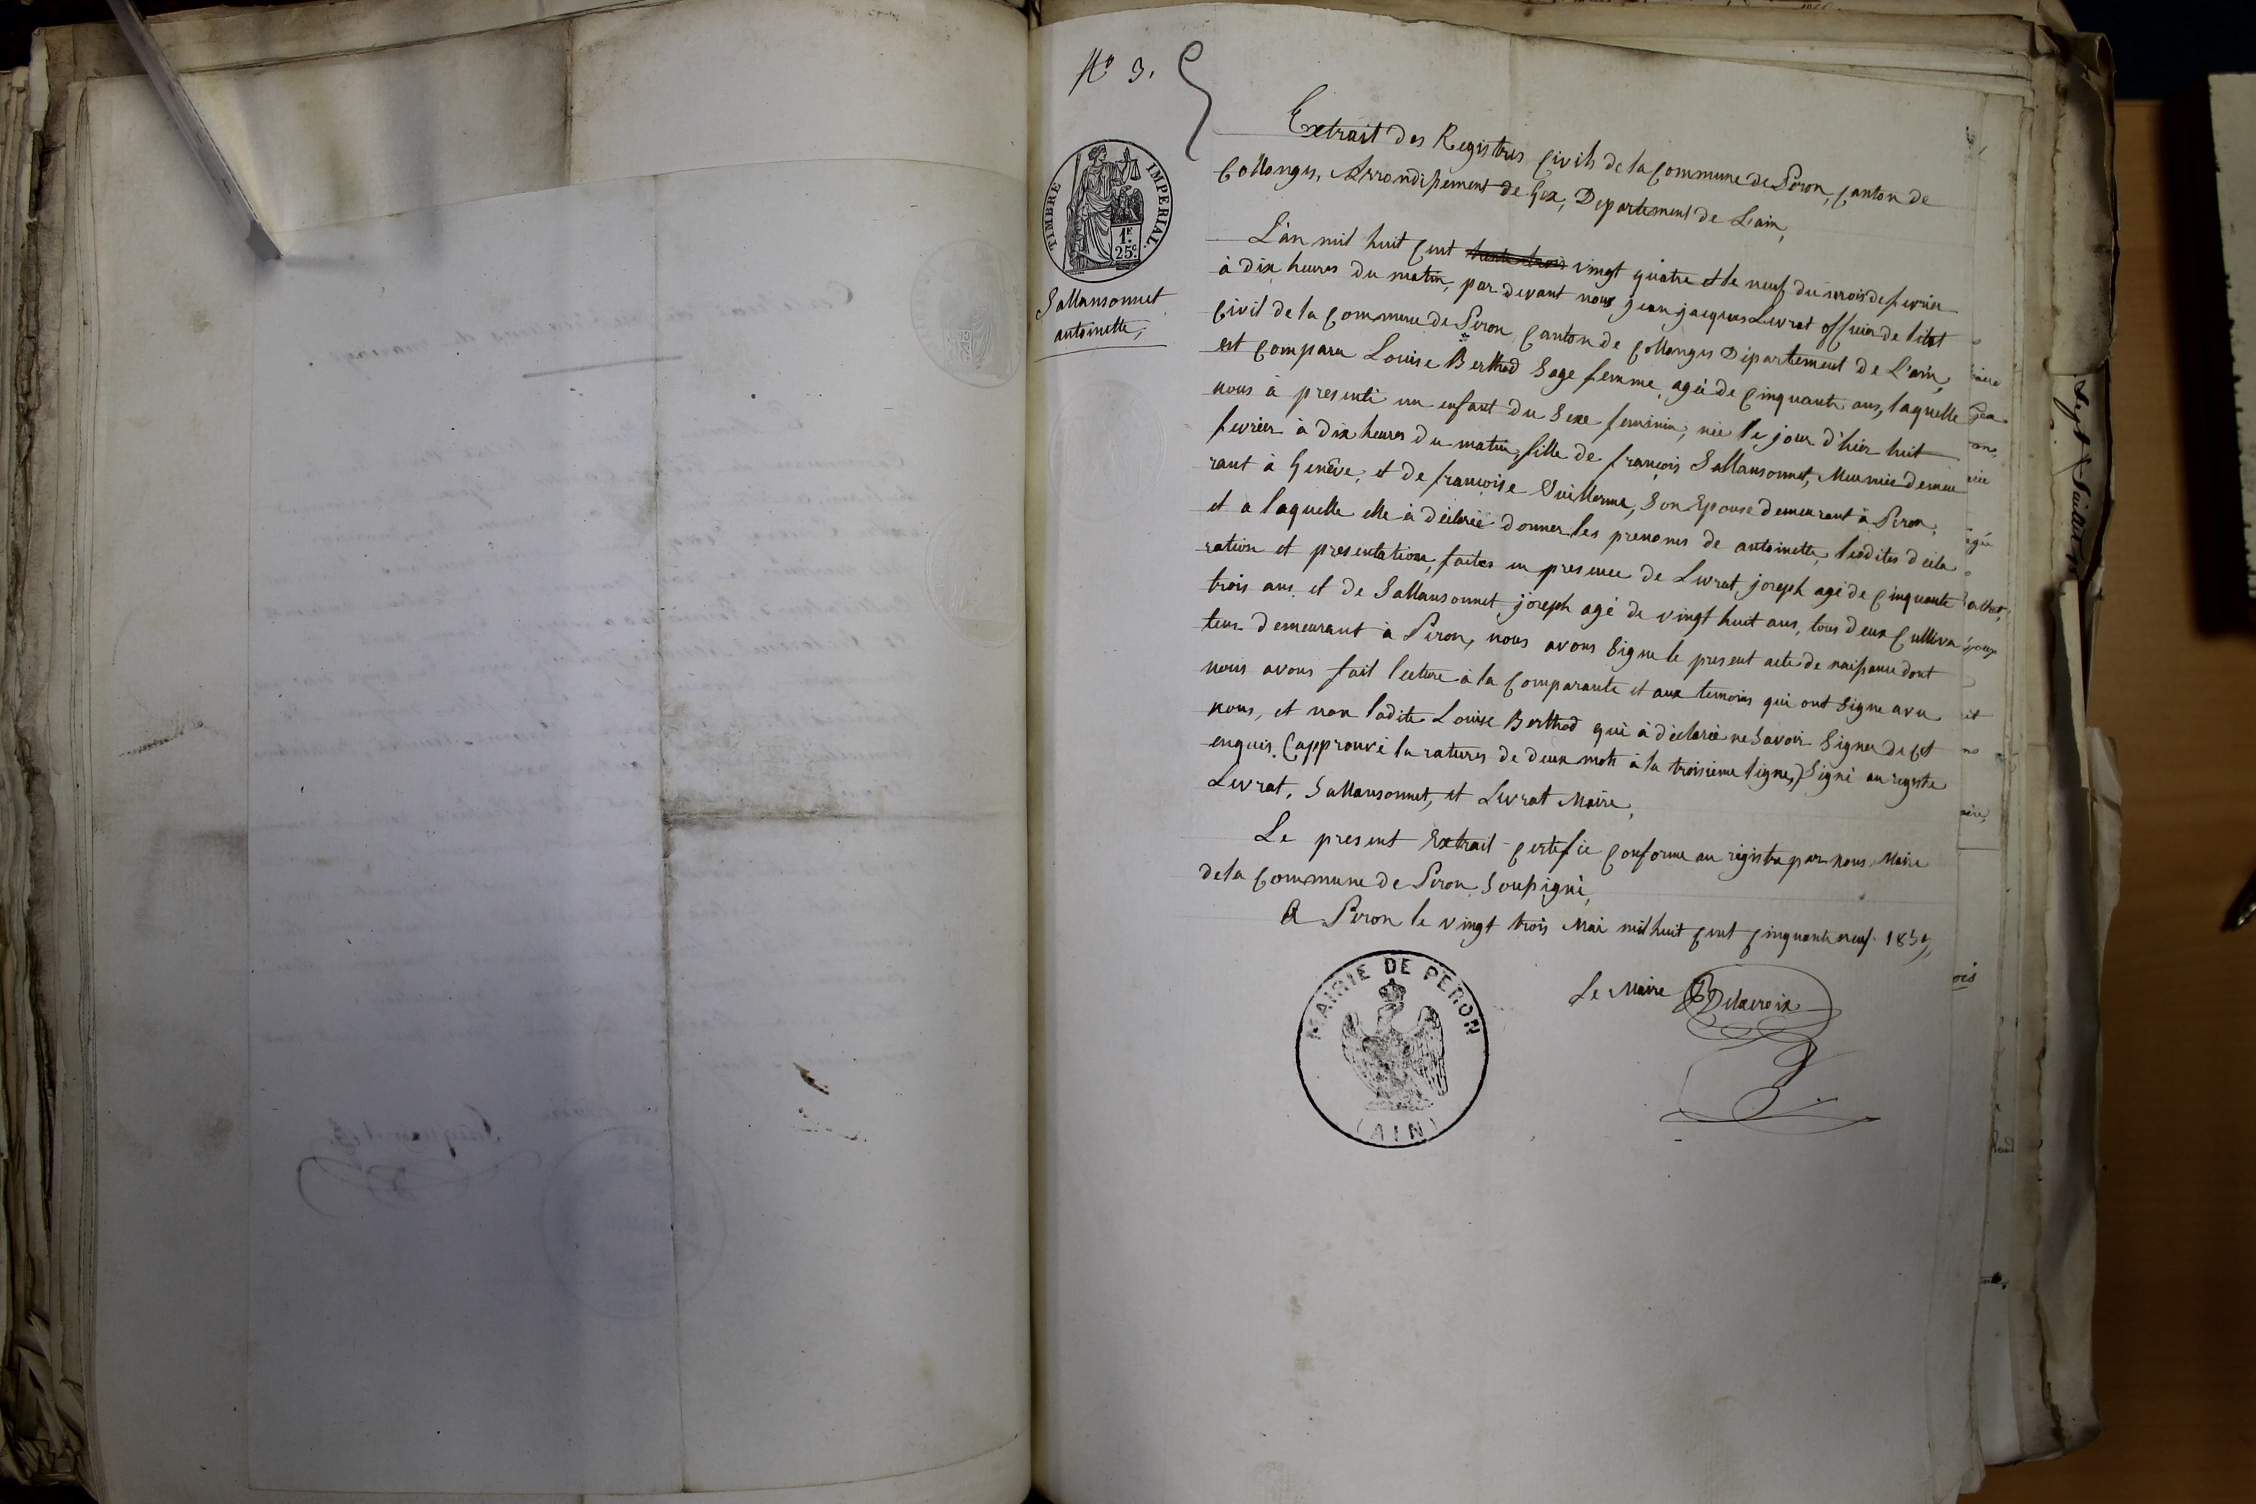 N° 3.
TIMBRE IMPERIAL.
1F.
25c.
Sallansonnet
antoinette,
Extrait des Registres Civils de la Commune de Péron, Canton de
Collonges, Arrondissement de Gex, Departement de L'ain,
L'an mil huit Cent trente trois vingt quatre et le neuf du mois de fevrier
à dix heures du matin, par devant nous jean jacques Livrat officier de l'état
Civil de la Commune de Péron Canton de Collonges Département de L'ain,
est Comparu Louise Berthod Sage femme, agée de Cinquante ans, laquelle
nous à presenté un enfant du Sexe feminin, née le jour d'hier huit
fevrier à dix heures du matin, fille de françois Sallansonnet, Meunier demeu
rant à Genève, et de françoise Vuillerme, Son Epouse demeurant à Péron,
et a laquelle elle à déclarée donner les prenoms de antoinette, lesdites décla
ration et presentation, faites en presence de Livrat joseph agé de Cinquante
trois ans, et de Sallansonnet joseph agé de vingt huit ans, tous deux Cultiva
teur demeurant à Péron, nous avons Signe le present acte de naissance dont
nous avons fait lecture à la Comparante et aux temoins qui ont Signe avec
nous, et non ladite Louise Berthod qui à déclarée ne Savoir Signer de Cet
enquis (approuvé la ratures de deux mots à la troisième ligne,) Signé au registre
Livrat, Sallansonnet, et Livrat Maire,
Le present Extrait Certifié Conforme au régistre par nous Maire
de la Commune de Péron Soussigné,
A Péron le vingt trois Mai mil huit Cent Cinquante neuf 1859,
Le Maire Delacroix
MAIRIE DE PÉRON
(AIN)